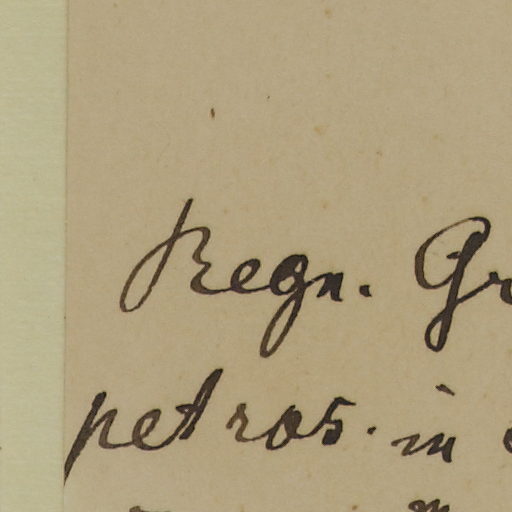 Regn. Gr
petros. in